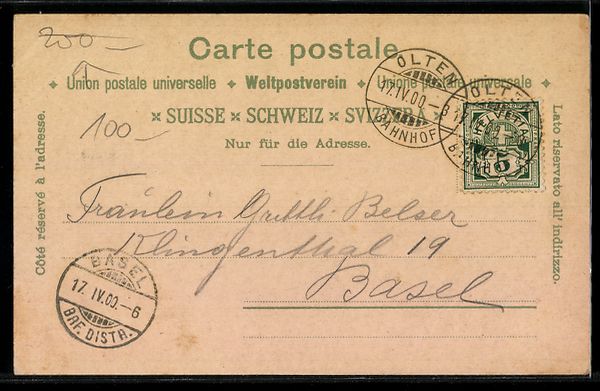 200-
Carte postale.
Union postale universelle Weltpostverein Unione postale universale
SUISSE SCHWEIZ SVIZZERA
100-
Nur für die Adresse.
Côté réservé à l'adresse.
Lato riservato all' indirizzo.
OLTEN
17.IV.00.-8
BAHNHOF
HELVETIA
5
Fräulein Gritti Belser
Klingenthal 19
Basel
BASEL
17.IV.00.-6
BRF. DISTR.